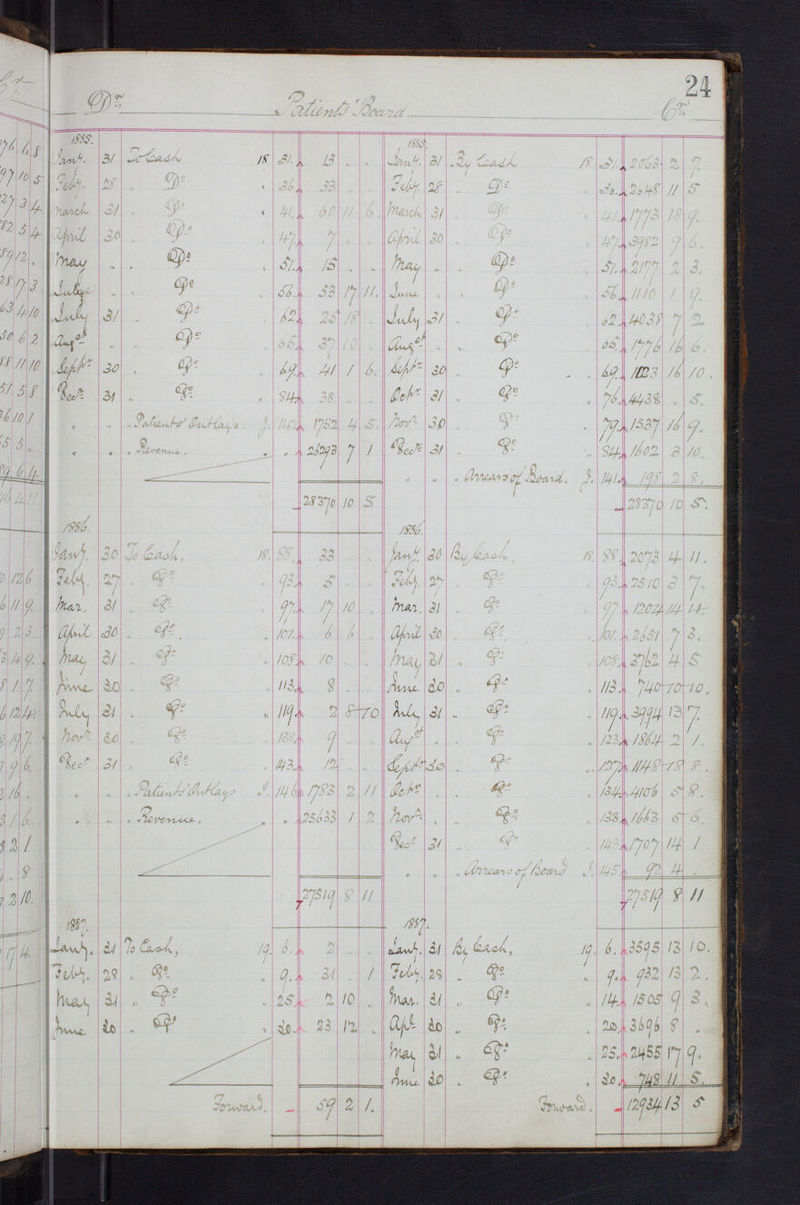 24
Dr. Patients' Board Cr.
1885. 1885.
Jany. 31 To Cash 18 31. 13 . . Jany. 31 By Cash 18. 31. 2063. 2 7.
Feby. 28 . Do . 36. 33 . . Feby 28 . Do . 36. 2048 11 5
March 31 . Do . 41. 60 11 6 March 31 . Do . 41. 1773 18 9.
April 30 . Do . 47. 7 . . April 30 . Do . 47. 3982 9 6.
May . . Do . 51. 15 . . May . . Do . 51. 2177 2 3.
June . . Do . 56. 53 17 11. June . . Do . 56. 1110 1 9.
July 31 . Do . 62. 25 18 . July 31 . Do . 62. 4038 7 2
Augst . . Do . 65. 37 10 . Augst . . Do . 65. 1776 16 6.
Septr 30 . Do . 69. 41 1 6. Septr 30 . Do . 69. 1123 16 10.
Decr. 31 . Do . 84. 38 . . Octr. 31 . Do . 76. 4438 . 5.
. . . Patients' Outlays. J. 142. 1752 4 5. Novr 30 . Do . 79. 1537 16 9.
. . . Revenue. . . 26293 7 1 Decr 31 . Do . 84. 1602 3 10.
. . . Arrears of Board. J. 141. 198 2 8.
28370 10 5 28370 10 5.
1886. 1886.
Jany. 30 To Cash, 18. 88. 33 . . Jany. 30 By Cash, 18. 88. 2073 4 11.
Feby. 27 . Do . 93. 5 . . Feby. 27 . Do . 93. 2510 3 7.
Mar. 31 . Do . 97. 17 10 . Mar. 31 . Do . 97. 1204 14 4.
April 30 . Do . 101. 6 6 . April 30 . Do . 101. 2651 7 3.
May 31 . Do . 108. 10 . . May 31 . Do . 108. 3762 4 5
June 30 . Do . 113. 8 . . June 30 . Do . 113. 740 10 10.
July 31 . Do . 119. 2 8 10 July 31 . Do . 119. 3994 13 7.
Novr. 30 . Do . 138. 9 . . Augst . . Do . 123. 1864 2 1.
Decr 31 . Do . 143. 12 . . Septr 30 . Do . 127. 1148 18 8.
. . . Patients' Outlays J. 146. 1783 2 11 Octr. . . Do . 134. 4106 5 8.
. . . Revenue, . . 25633 1 2 Novr. . . Do . 138. 1663 5 6.
Decr 31 . Do . 143. 1707 14 1
. . . Arrears of Board J. 145. 92 4 .
27519 8 11 27519 8 11
1887. 1887.
Jany. 31 To Cash, 19. 6. 2 . . Jany. 31 By Cash, 19. 6. 3595 13 10.
Feby. 28 . Do . 9. 31 . 1 Feby. 28 . Do . 9. 932 13 2.
May 31 . Do . 25. 2 10 . Mar. 31 . Do . 14. 1505 9 3.
June 30 . Do . 30. 23 12 . Apl. 30 . Do . 20. 3696 8 .
May 31 . Do . 25. 2455 17 9.
June 30 . Do . 30. 748 11 5.
Forward. 59 2 1. Forward. 12934 13 5